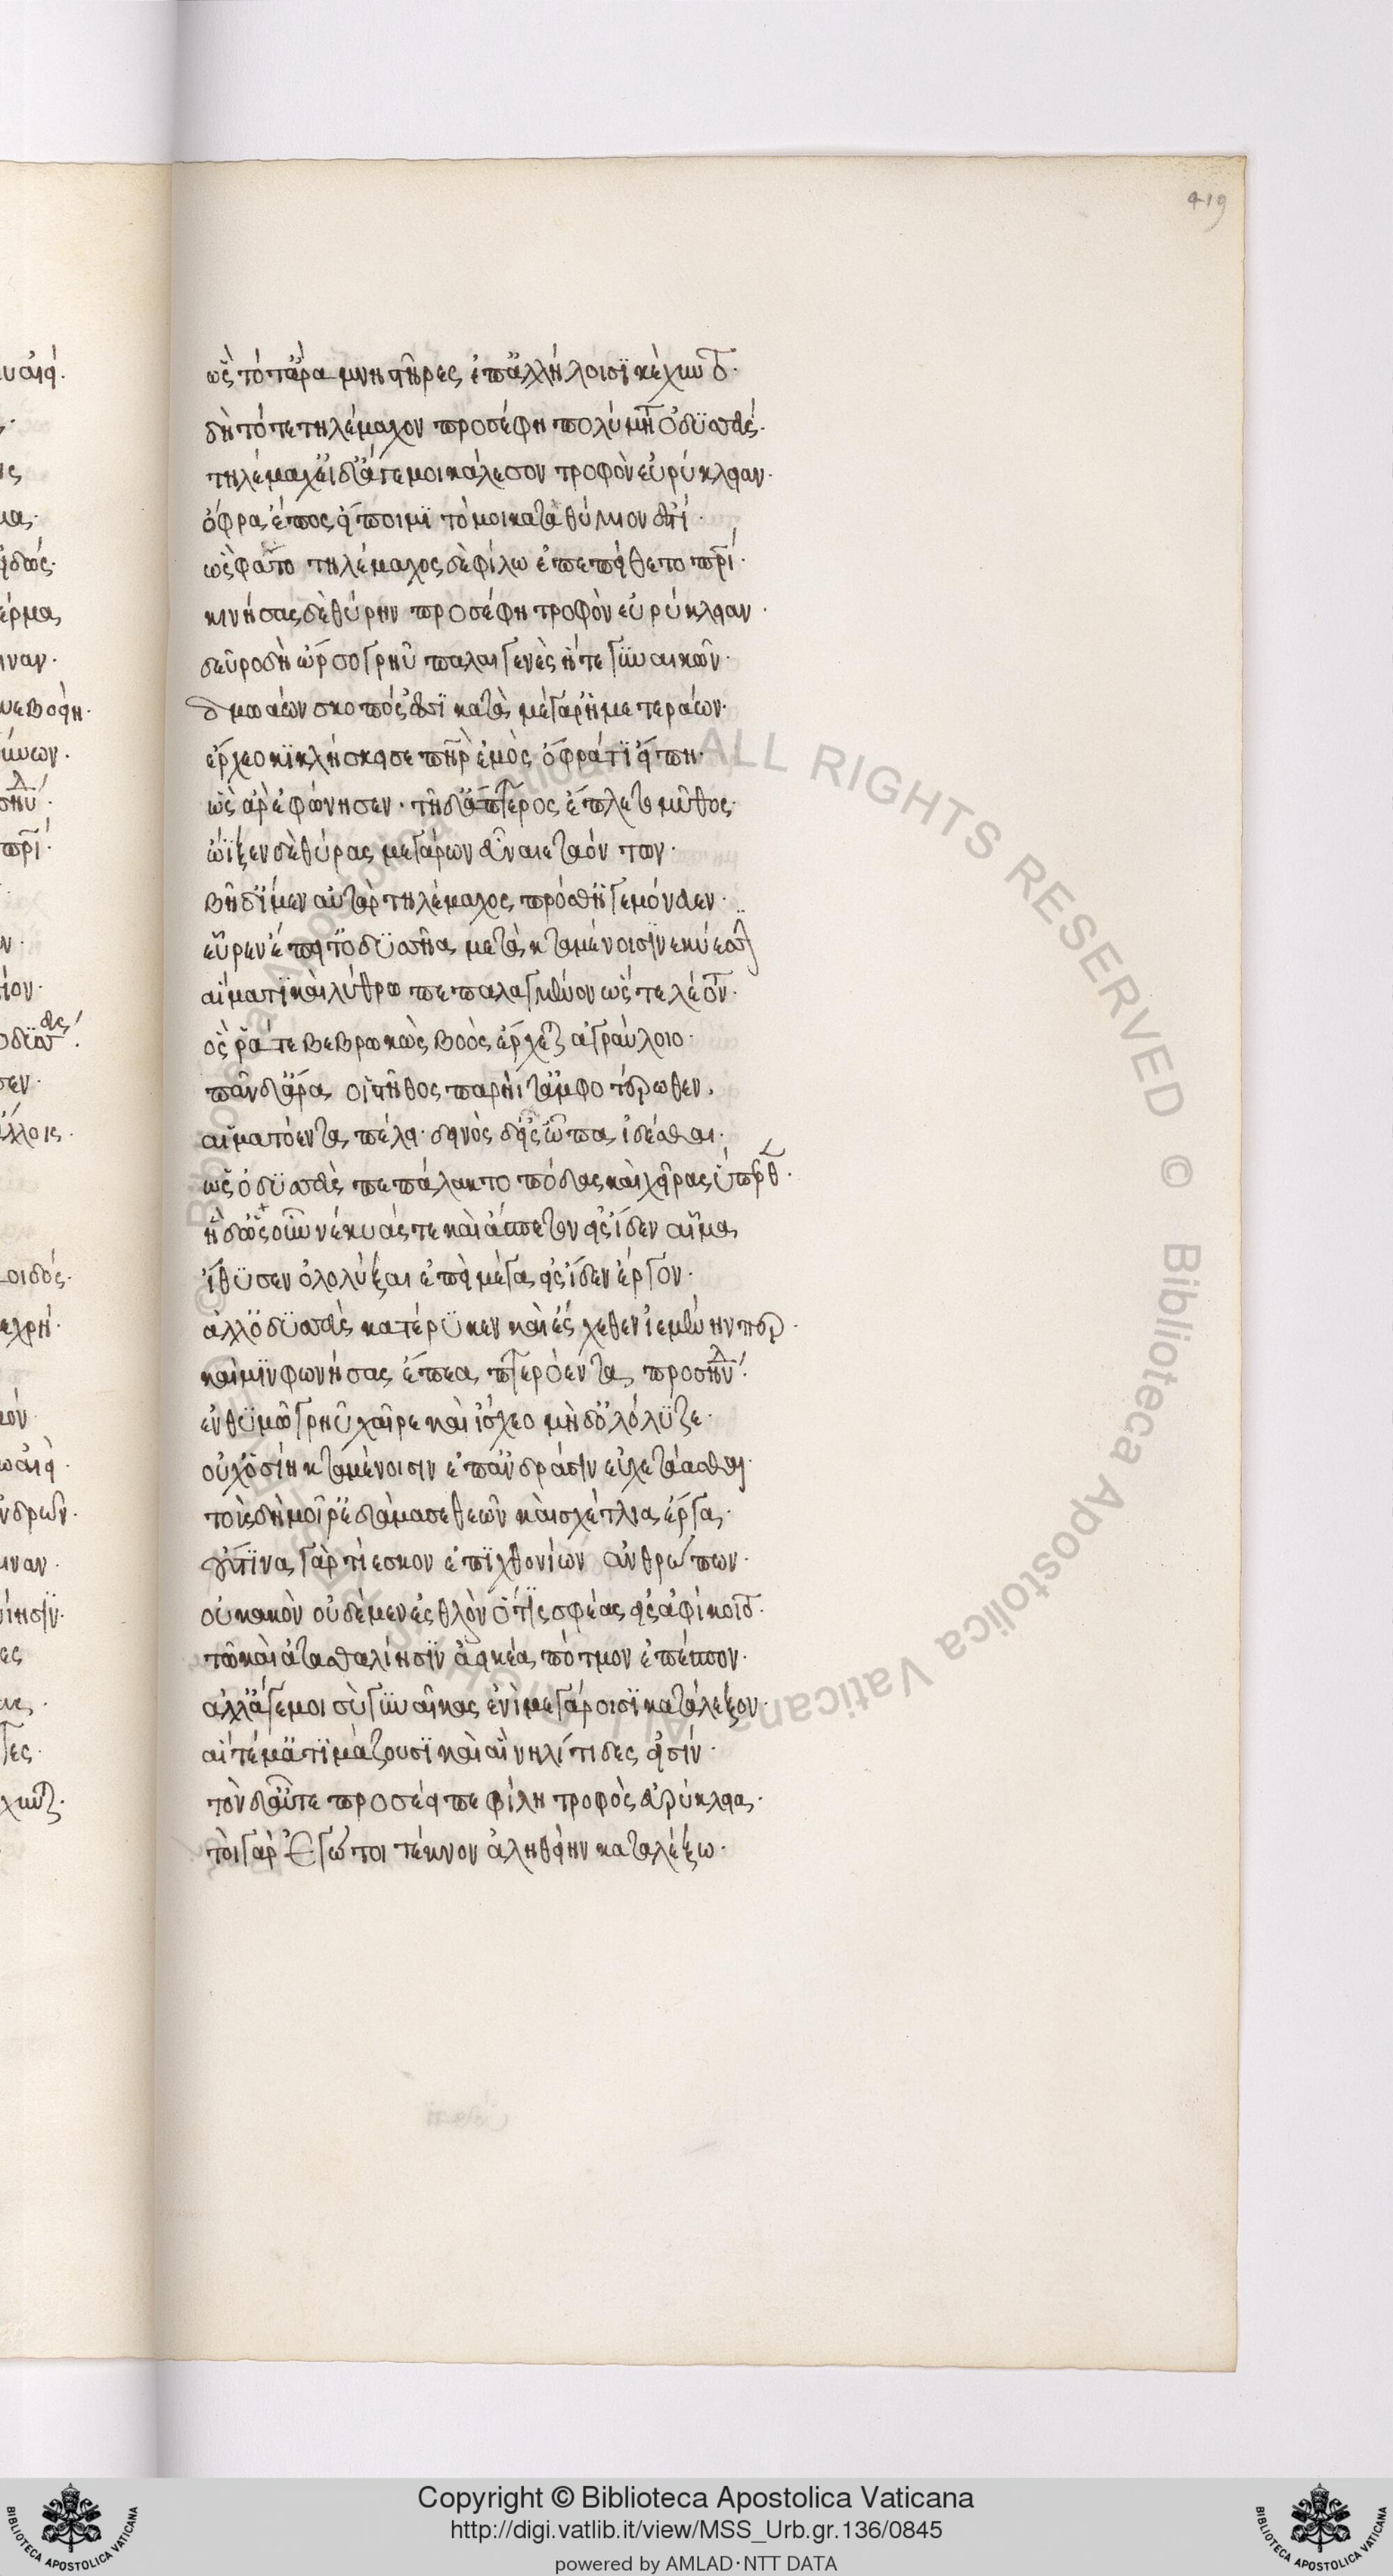 419
ὣς τότ' ἄρα μνηστῆρες ἐπ' ἀλλήλοισι κέχυντο·
δὴ τότε τηλέμαχον προσέφη πολύμητις ὀδυσσεύς·
τηλέμαχ' εἰ δ' ἄγε μοι κάλεσον τροφὸν εὐρύκλειαν·
ὄφρα ἔπος εἴποιμι τό μοι καταθύμιον ἐστί·
ὣς φάτο τηλέμαχος δὲ φίλω ἐπεπείθετο πατρί·
κινήσας δὲ θύρην προσέφη τροφὸν εὐρύκλειαν·
δεῦρο δὴ ὦρσο γρηῦ παλαιγενὲς ἥτε γυναικῶν·
δμωάων σκοπός ἐσσι κατὰ μέγαρ' ἡμετεράων·
ἔρχεο κικλήσκει σε πατὴρ ἐμὸς ὄφρά τι εἴπη·
ὣς ἄρ' ἐφώνησεν· τῆ δ' ἄπτερος ἔπλετο μῦθος·
ὤϊξεν δὲ θύρας μεγάρων εὐναιεταόντων·
βῆ δ' ἴμεν αὐτὰρ τηλέμαχος πρόσθ' ἡγεμόνευεν·
εὗρεν ἔπειτ' ὀδυσσῆα μετὰ κταμένοισι νεκύεσσιν
αἵματι καὶ λύθρω πεπαλαγμένον ὥς τε λέοντα·
ὅς ῥά τε βεβρωκὼς βοὸς ἔρχεται ἀγραύλοιο·
πᾶν δ' ἄρα οἱ στῆθος παρήιά τ' ἀμφοτέρωθεν·
αἱματόεντα πέλει· δεινὸς δ' εἰς ὦπα ἰδέσθαι·
ὣς ὀδυσσεὺς πεπάλακτο πόδας καὶ χεῖρας ὕπερθεν·
ἡ δ' ὡς οὖν νέκυάς τε καὶ ἄσπετον εἴσιδεν αἷμα
ἴθυσεν ὀλολύξαι ἐπεὶ μέγα εἴσιδεν ἔργον·
ἀλλ' ὀδυσσεὺς κατέρυκεν καὶ ἔσχεθεν ἱεμένην περ·
καί μιν φωνήσας ἔπεα πτερόεντα προσηύδα·
ἐν θυμῶ γρηῦ χαῖρε καὶ ἴσχεο μὴ δ' ὀλόλυζε·
οὐχ ὁσίη κταμένοισιν ἐπ' ἀνδράσιν εὐχετάασθαι·
τοὺς δὲ μοῖρ' ἐδάμασε θεῶν καὶ σχέτλια ἔργα·
οὔτινα γὰρ τίεσκον ἐπιχθονίων ἀνθρώπων·
οὐ κακὸν οὐδὲ μὲν ἐσθλὸν ὅτις σφέας εἰσαφίκοιτο·
τῶ καὶ ἀτασθαλίησιν ἀεικέα πότμον ἐπέσπον·
ἀλλ' ἄγε μοι σὺ γυναῖκας ἐνὶ μεγάροισι κατάλεξον·
αἵ τέ μ' ἀτιμάζουσι καὶ αἳ νηλίτιδες εἰσίν·
τὸν δ' αὖτε προσέειπε φίλη τροφὸς εὐρύκλεια·
τοὶ γὰρ ἐγώ τοι τέκνον ἀληθείην καταλέξω·
ALL RIGHTS RESERVED © Biblioteca Apostolica Vaticana
Copyright © Biblioteca Apostolica Vaticana
http://digi.vatlib.it/view/MSS_Urb.gr.136/0845
powered by AMLAD·NTT DATA
BIBLIOTECA APOSTOLICA VATICANA
BIBLIOTECA APOSTOLICA VATICANA